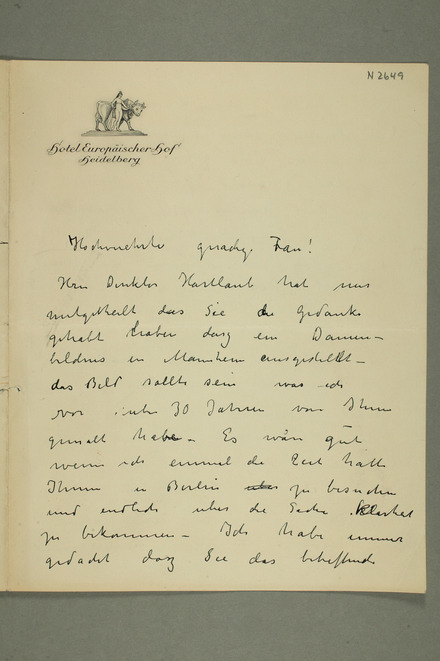 N 2649
Hotel Europäischer Hof
Heidelberg
Hochverehrte gnädige Frau!
Herr Direktor Hartlaub hat mir
mitgetheilt das Sie die Gedanke
gehabt haben dasz ein Damen-
bildnis in Mannheim ausgestellt –
das Bild sollte sein was ich
vor über 30 Jahren von Ihnen
gemalt habe – Es wäre gut
wenn ich einmal die Zeit hätte
Ihnen in Berlin zu besuchen
und endlich über die Sache Klarheit
zu bekommen – Ich habe immer
gedacht dasz Sie das betreffende